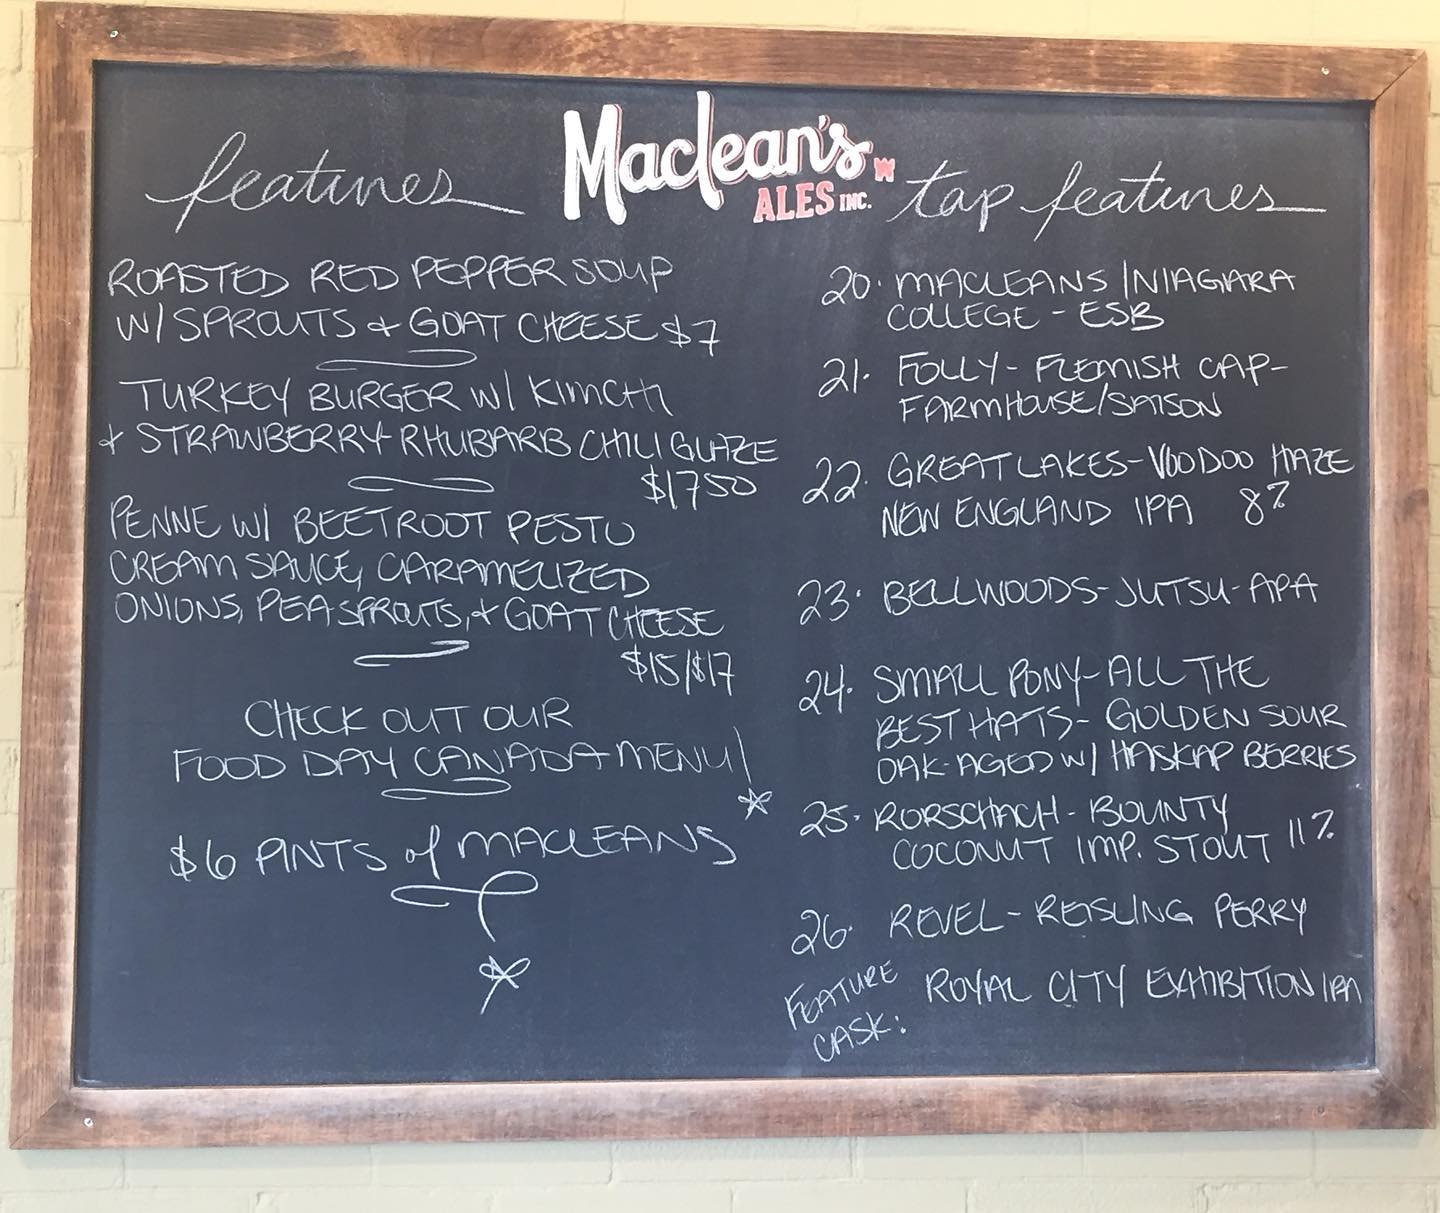 Maclean's
ALES INC.
features
ROASTED RED PEPPER SOUP
W/ SPROUTS & GOAT CHEESE $7
TURKEY BURGER W/ KIMCHI
& STRAWBERRY RHUBARB CHILI GLAZE
$1750
PENNE W/ BEETROOT PESTO
CREAM SAUCE, CARAMELIZED
ONIONS, PEA SPROUTS, & GOAT CHEESE
$15/$17
CHECK OUT OUR
FOOD DAY CANADA MENU!
$6 PINTS of MACLEANS
tap features
20. MACLEANS / NIAGARA
COLLEGE - ESB
21. FOLLY - FLEMISH CAP -
FARMHOUSE/SAISON
22. GREAT LAKES - VOODOO HAZE
NEW ENGLAND IPA 8%
23. BELLWOODS - JUTSU - APA
24. SMALL PONY - ALL THE
BEST HATS - GOLDEN SOUR
OAK-AGED W/ HASKAP BERRIES
25. RORSCHACH - BOUNTY
COCONUT IMP. STOUT 11%
26. REVEL - REISLING PERRY
FEATURE
CASK: ROYAL CITY EXHIBITION IPA